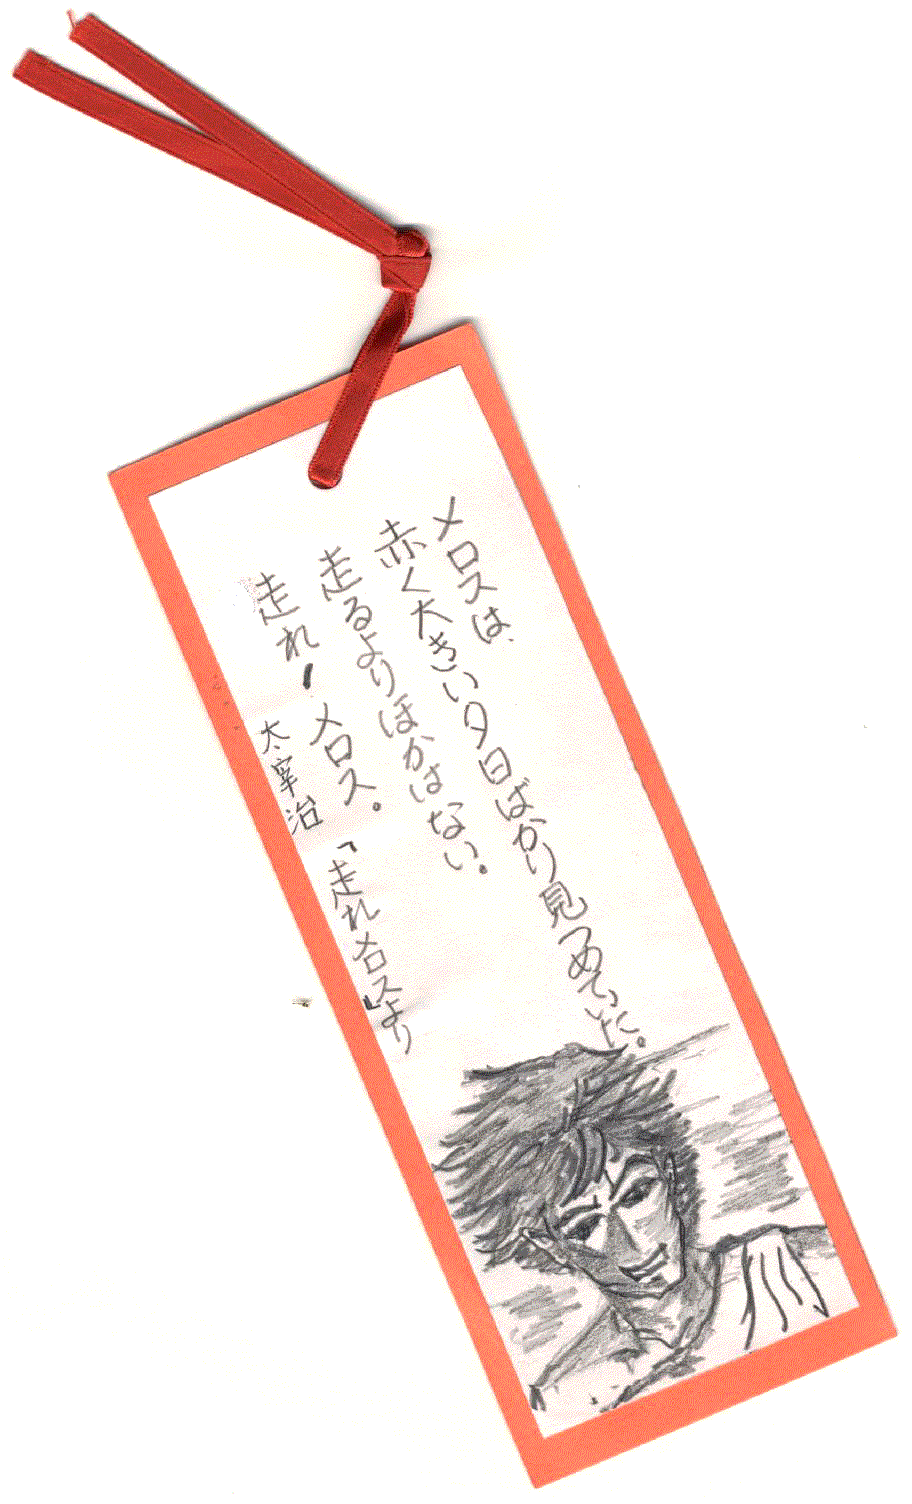 メロスは、
赤く大きい夕日ばかり見つめていた。
走るよりほかはない。
走れ！メロス。
太宰治「走れメロス」より